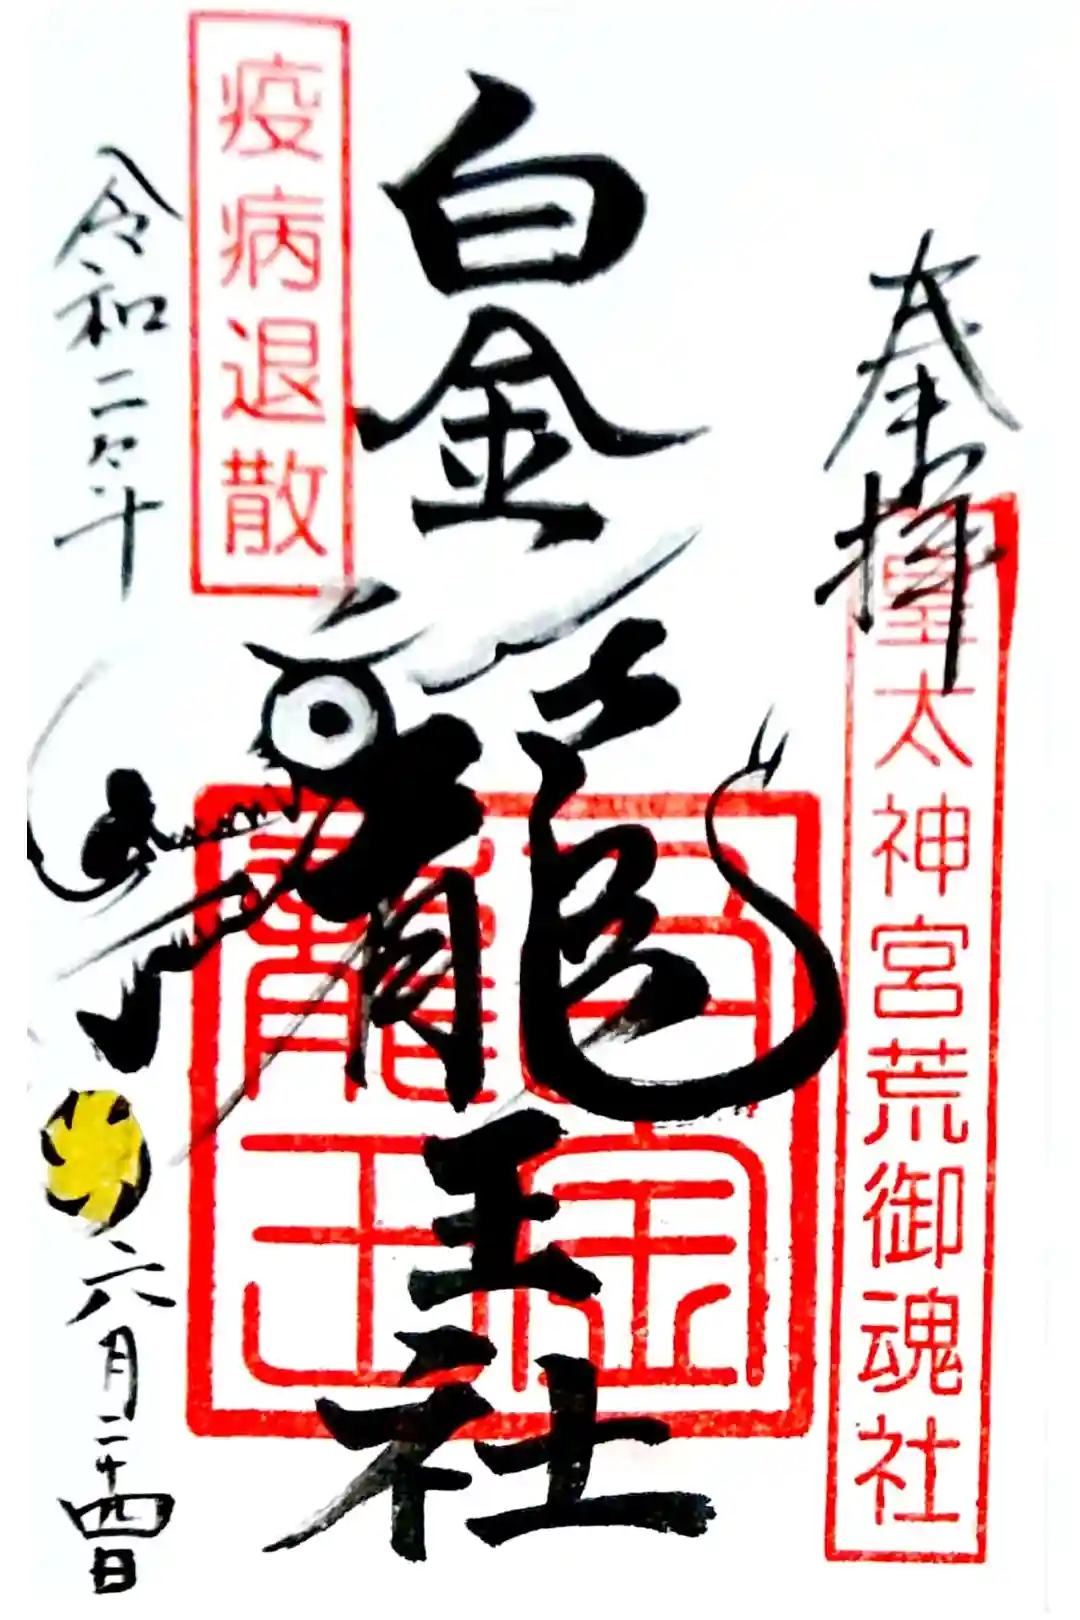 奉拝
皇太神宮荒御魂社
白金龍王社
白金
龍王
疫病退散
令和二年
六月二十四日